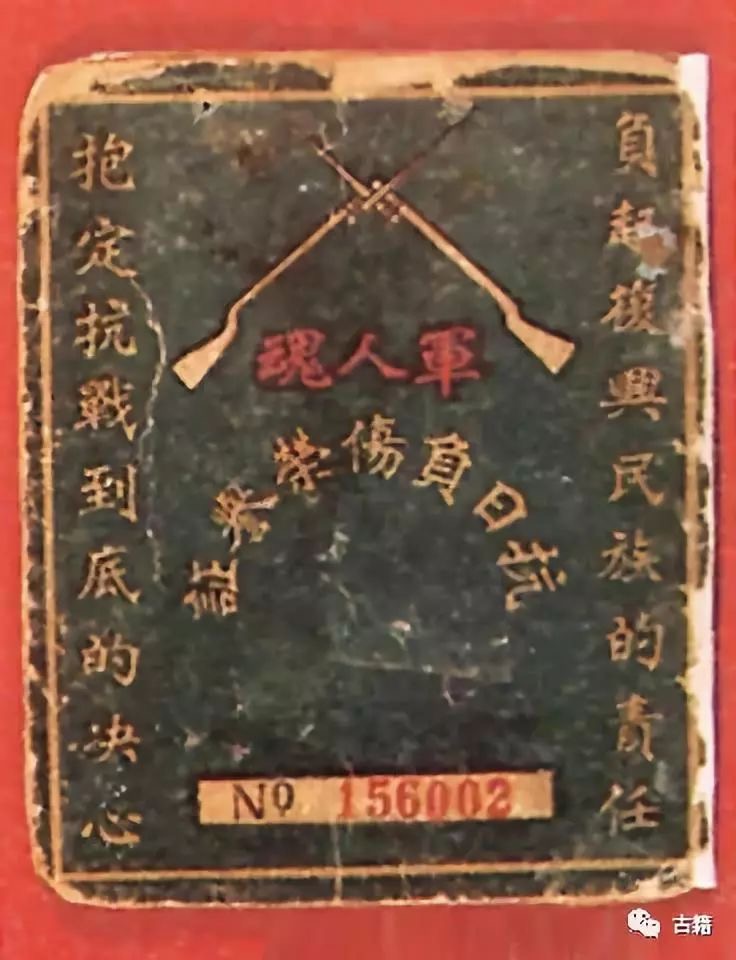 負起復興民族的責任
軍人魂
抗日負傷榮譽証
抱定抗戰到底的决心
Nº 156002
古籍